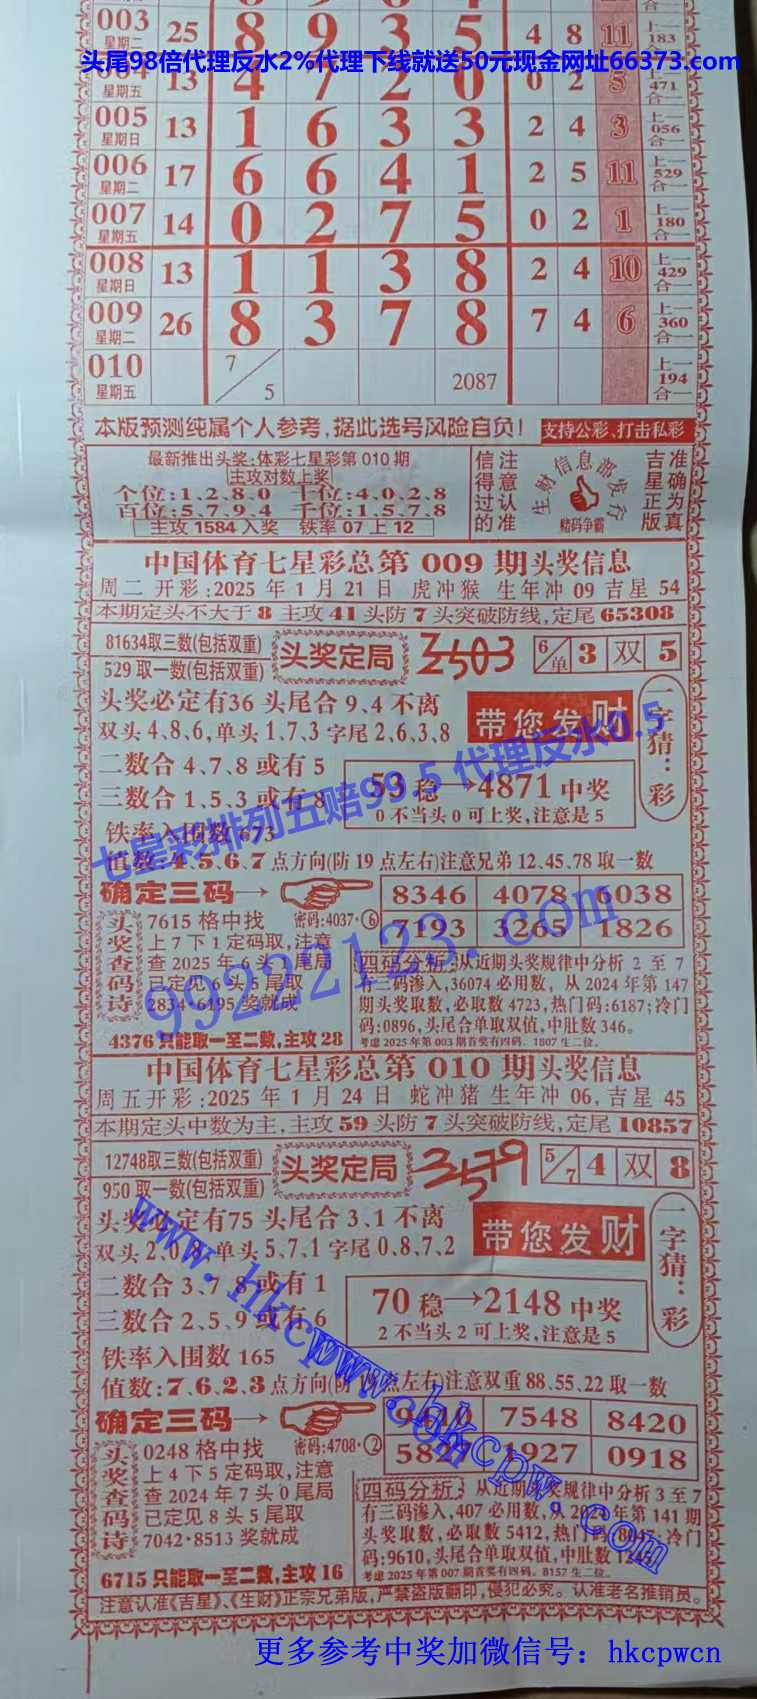 003 星期二 25 8 9 3 5 4 8 11 上一 183 合一
头尾98倍代理反水2%代理下线就送50元现金网址66373.com
004 星期五 13 4 7 2 0 0 2 5 上一 471 合一
005 星期日 13 1 6 3 3 2 4 3 上一 056 合一
006 星期二 17 6 6 4 1 2 5 11 上一 529 合一
007 星期五 14 0 2 7 5 0 2 1 上一 180 合一
008 星期日 13 1 1 3 8 2 4 10 上一 429 合一
009 星期二 26 8 3 7 8 7 4 6 上一 360 合一
010 星期五 7/5 2087 上一 194 合一
本版预测纯属个人参考,据此选号风险自负! 支持公彩、打击私彩
最新推出头奖:体彩七星彩第 010 期
主攻对数上奖
个位:1、2、8、0 十位:4、0、2、8
百位:5、7、9、4 千位:1、5、7、8
主攻 1584 入奖 铁率 07 上 12
信得过的
注意认准
生财信息部发行
赌码争霸
吉星正版
准确为真
中国体育七星彩总第 009 期头奖信息
周二 开彩:2025 年 1 月 21 日 虎冲猴 生年冲 09 吉星 54
本期定头不大于 8 主攻 41 头防 7 头突破防线,定尾 65308
81634取三数(包括双重)
529 取一数(包括双重)
头奖定局
2503
6/单 3 双 5
头奖必定有36 头尾合 9、4 不离
双头 4、8、6,单头 1、7、3 字尾 2、6、3、8
带您发财
一字猜:彩
二数合 4、7、8 或有 5
三数合 1、5、3 或有 8
53 稳→4871 中奖
0 不当头 0 可上奖,注意是 5
铁率入围数 673
值数:4、5、6、7 点方向(防 19 点左右)注意兄弟 12、45、78 取一数
七星彩排列五赔99.5 代理反水0.5
确定三码→
8346 4078 6038
7193 3265 1826
头奖查码诗
7615 格中找 密码:4037·⑥
上 7 下 1 定码取,注意
查 2025 年 6 头 1 尾局
已定见 6 头 5 尾取
2834·6195 奖就成
4376 只能取一至二数,主攻 28
四码分析:从近期头奖规律中分析 2 至 7
有三码渗入,36074 必用数，从 2024 年第 147
期头奖取数,必取数 4723,热门码:6187;冷门
码:0896,头尾合单取双值,中肚数 346。
考虑 2025 年第 003 期首奖有四码、1807 生二位。
99222123.com
中国体育七星彩总第 010 期头奖信息
周五开彩:2025 年 1 月 24 日 蛇冲猪 生年冲 06,吉星 45
本期定头中数为主,主攻 59 头防 7 头突破防线,定尾 10857
12748取三数(包括双重)
950 取一数(包括双重)
头奖定局
3579
5/7 4 双 8
头奖必定有75 头尾合 3、1 不离
双头 2、0、8,单头 5、7、1 字尾 0、8、7、2
带您发财
一字猜:彩
二数合 3、7、8 或有 1
三数合 2、5、9 或有 6
70 稳→2148 中奖
2 不当头 2 可上奖,注意是 5
铁率入围数 165
值数:7、6、2、3 点方向(防 19点左右)注意双重 88、55、22 取一数
www.hkcpw.com
www.hkcpw.com
确定三码→
7548 8420
1927 0918
头奖查码诗
0248 格中找 密码:4708·②
上 4 下 5 定码取,注意
查 2024 年 7 头 0 尾局
已定见 8 头 5 尾取
7042·8513 奖就成
6715 只能取一至二数,主攻 16
四码分析:从近期头奖规律中分析 3 至 7
有三码渗入,407 必用数,从 2024 年第 141 期
头奖取数,必取数 5412,热门码:8047;冷门
码:9610,头尾合单取双值,中肚数
考虑 2025 年第 007 期首奖有四码、8157 生二位。
注意认准《吉星》、《生财》正宗兄弟版,严禁盗版翻印,侵犯必究。认准老名推销员。
更多参考中奖加微信号：hkcpwcn